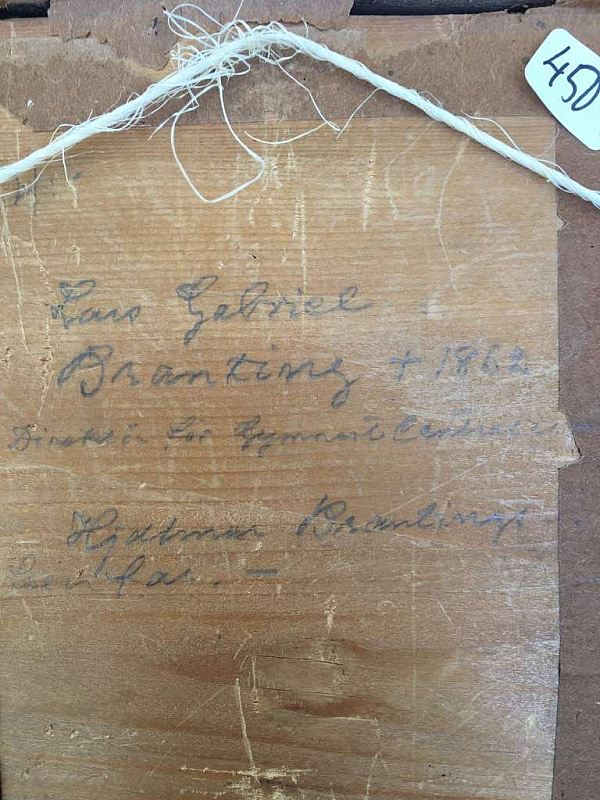 450
Lars Gabriel
Branting + 1862
Direktör för Gymnast. Central
Hjalmar Brantings
far. —